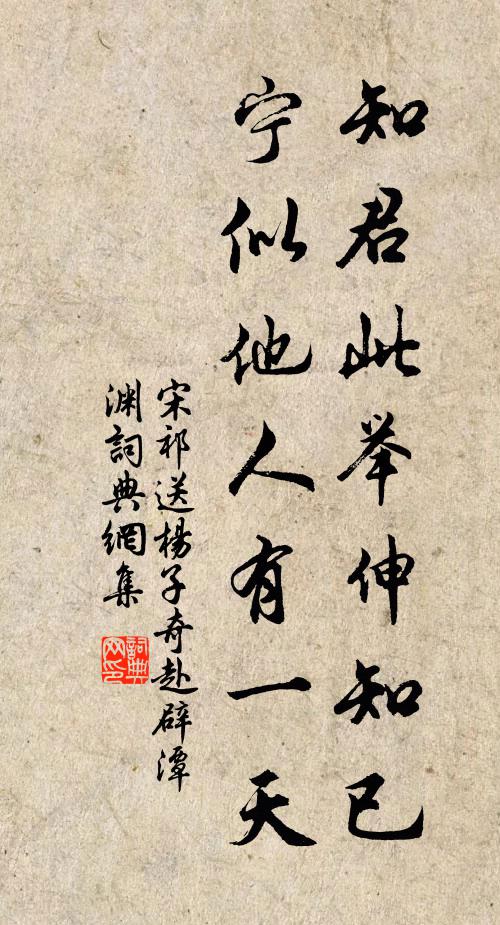 知君此举伸知已
宁似他人有一天
宋祁送楊子奇赴辟潭
渊詞典網集
詞典网印